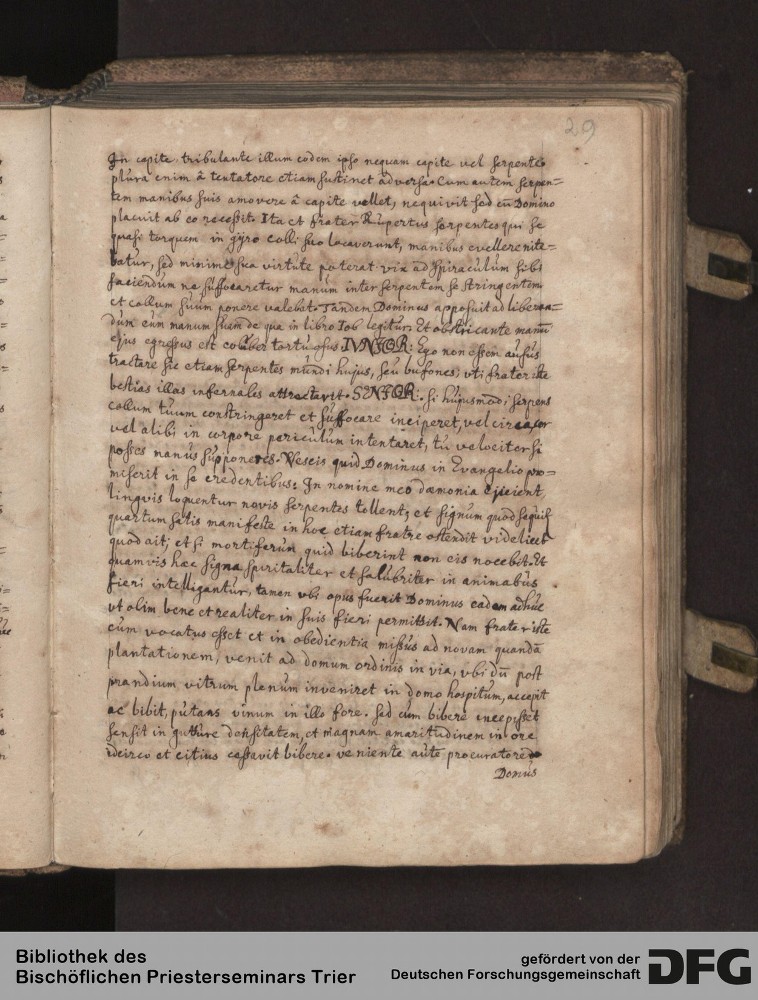 29
In capite tribulante illum eodem ipso nequam capite vel serpente
plura enim â tentatore etiam sustinet adversa. Cum autem serpen=
tem manibus suis amovere â capite vellet, nequivit sed cū Domino
placuit ab eo recessit. Ita et frater Rupertus serpentes qui se
quasi torquem in gÿro colli suo locaverunt, manibus evellere nite=
batur, sed minime sua virtute poterat vix ad spiraculum sibi
faciendum ne suffocaretur manum inter serpentem se stringentem
et collum suum ponere valebat. Tandem Dominus apposuit ad liberan=
dum eum manum suam de qua in libro Iob legitur: Et obstricante manu
ejus egressus est coluber tortuosus IVNIOR: Ego non essem ausus
tractare sic etiam serpentes mundi hujus, seu bufones, uti frater iste
bestias illas infernales attractavit. SENIOR: si hujusmodi serpens
collum tuum constringeret et suffocare inciperet, vel circa cor
vel alibi in corpore periculum intentaret, tu velociter si
posses manus supponeres. Nescis quid Dominus in Evangelio pro=
miserit in se credentibus: In nomine meo dæmonia ejicient,
linguis loquentur novis serpentes tollent, et signum quod sequit
quartum satis manifeste in hoc etiam fratre ostendit videlicet
quod ait; et si mortiferum quid biberint non eis nocebit. Et
quamvis hæc signa spiritaliter et salubriter in animabus
fieri intelligantur, tamen ubi opus fuerit Dominus eadem adhuc
vt olim bene et realiter in suis fieri permittit. Nam frater iste
cum vocatus esset et in obedientia missus ad novam quandā
plantationem, venit ad domum ordinis in via, vbi dū post
prandium vitrum plenum inveniret in domo hospitum, accepit
ac bibit, putans vinum in illo fore. sed cum bibere incepisset
sensit in gutture densitatem, et magnam amaritudinem in ore
idcirco et citius cessavit bibere. ve niente autē procuratore
Domus
Bibliothek des
Bischöflichen Priesterseminars Trier
gefördert von der
Deutschen Forschungsgemeinschaft
DFG